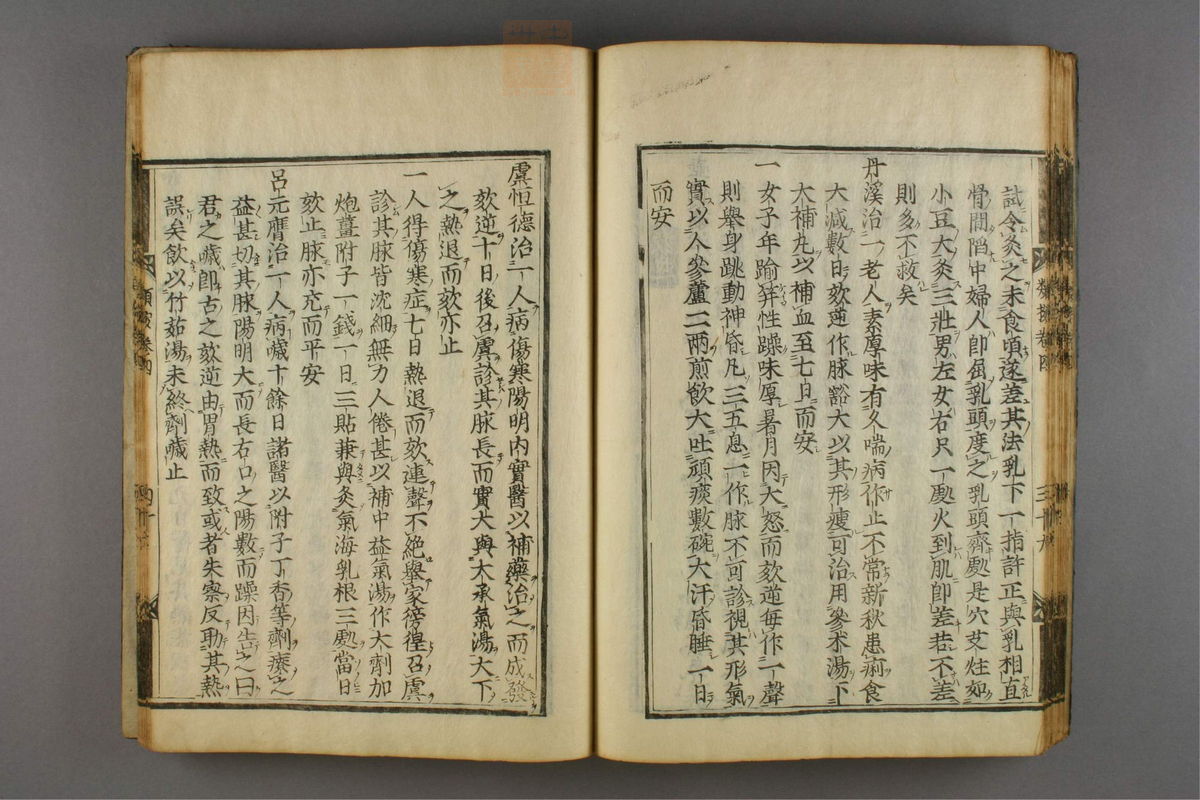 試令灸之未食頃遂差其法乳下一指許正與乳相直
骨間陷中婦人卽屈乳頭度之乳頭齊處是穴艾炷如
小豆大灸三壯男左女右只一處火到肌卽差若不差
則多不救矣
丹溪治一老人素厚味有久喘病作止不常新秋患痢食
大減數日欬逆作脉豁大以其形瘦可治用參朮湯下
大補丸以補血至七日而安
一女子年踰笄性躁味厚暑月因大怒而欬逆每作一聲
則舉身跳動神昏凡三五息一作脉不可診視其形氣
實以人參蘆二兩煎飲大吐頑痰數碗大汗昏睡一日
而安
虞恒德治一人病傷寒陽明內實醫以補藥治之而成發
欬逆十日後召虞診其脉長而實大與大承氣湯大下
之熱退而欬亦止
一人得傷寒症七日熱退而欬連聲不絕舉家徬徨召虞
診其脉皆沈細無力人倦甚以補中益氣湯作大劑加
炮薑附子一錢一日三貼兼與灸氣海乳根三處當日
欬止脉亦充而平安
呂元膺治一人病噦十餘日諸醫以附子丁香等劑療之
益甚切其脉陽明大而長右口之陽數而躁因告之曰
君之噦卽古之欬逆由胃熱而致或者朱察反助其熱
誤矣飲以竹茹湯未終劑噦止
類按卷四
三十九